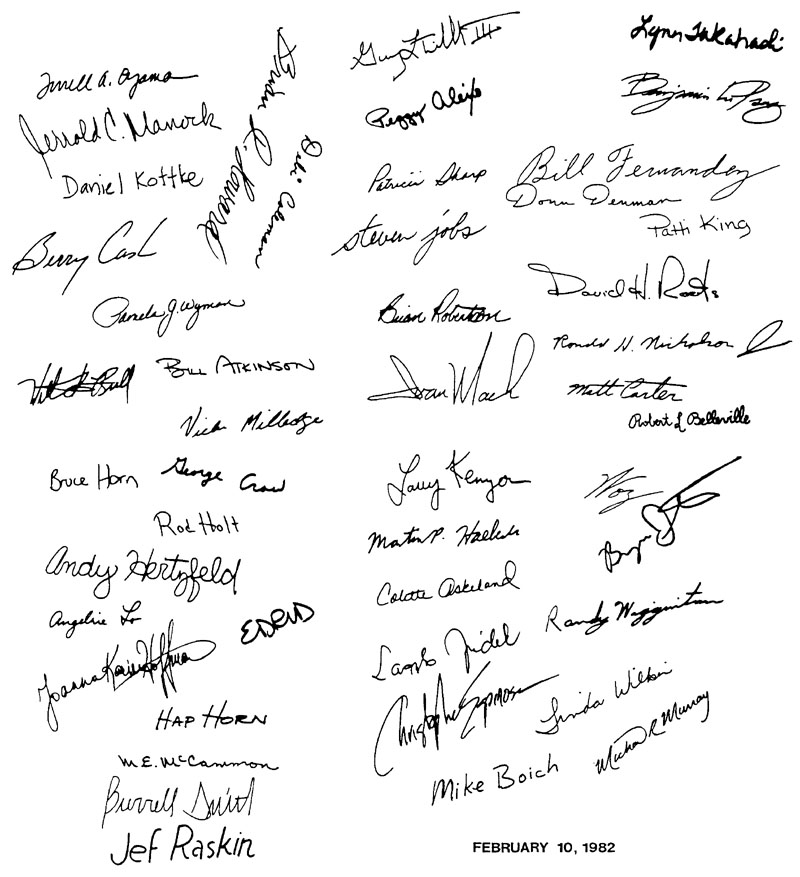 Terrell A. Oyama
Jerrold C. Manock
Daniel Kottke
Brian R. Howard
Debi Coleman
Benny Cash
Pamela J. Wyman
Bill Atkinson
Vicki Milledge
Bruce Horn
George Crow
Rod Holt
Andy Hertzfeld
Angeline Lo
Joanna Karin Hoffman
Hap Horn
M.E. McCammon
Burrell Smith
Jef Raskin
III
Peggy Alexio
Patricia Sharp
steven jobs
Brian Robertson
Ivan Mach
Larry Kenyon
Martin P. Haeberli
Colette Askeland
Laszlo Zidek
Christopher Espinosa
Mike Boich
Lynn Takahashi
Bill Fernandez
Donn Denman
Patti King
David H. Roots
Ronald H. Nicholson Jr
Matt Carter
Robert L Belleville
Woz
Bryan
Randy Wigginton
Linda Wilkin
Michael R Murray
FEBRUARY 10, 1982